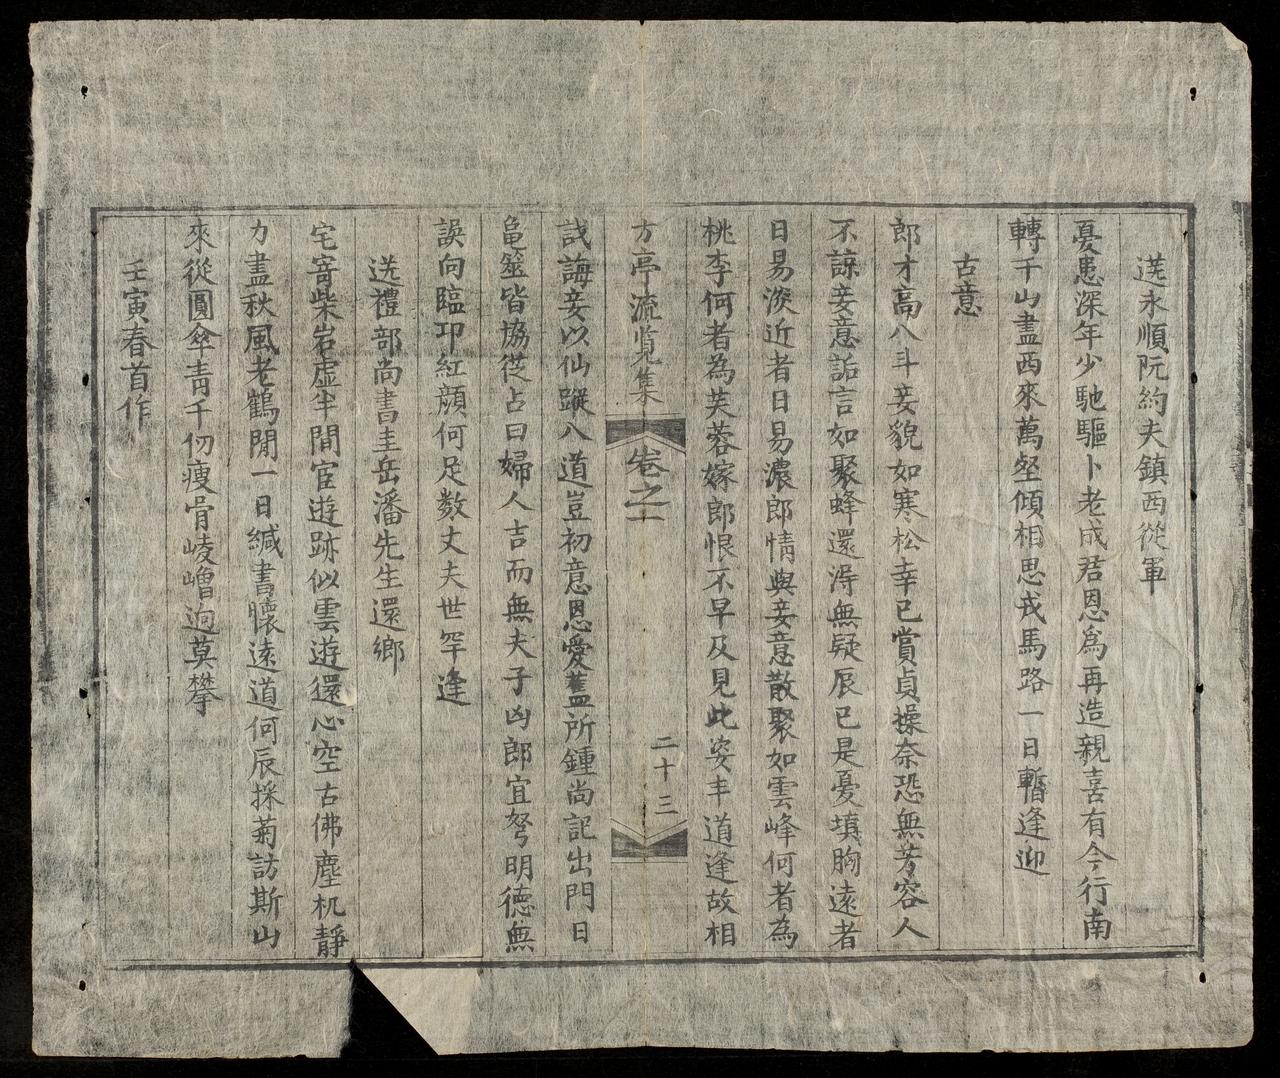 送永順阮約夫鎮西從軍
憂患深年少馳驅卜老成君恩爲再造親喜有今行南
轉千山盡西來萬壑傾相思戎馬路一日暫逢迎
古意
郎才高八斗妾貌如寒松幸已賞貞操奈恐無芳容人
不諒妾意詬言如聚蜂還淂無疑辰已是憂填胸遠者
日易淡近者日易濃郎情與妾意散聚如雲峰何者為
桃李何者為芙蓉嫁郎恨不早及見此姿丰道逢故相
方亭流覧集 卷之一 二十三
識誨妾以仙蹤八道豈初意恩愛蓋所鍾尚記出門日
龟筮皆協從占曰婦人吉而無夫子凶郎宜努明德無
誤向臨卭紅顔何足数丈夫世罕逢
送禮部尚書圭岳潘先生還鄉
宅寄柴岩虛半間宦遊跡似雲遊還心空古佛塵机靜
力盡秋風老鶴閒一日緘書懷遠道何辰採菊訪斯山
來從圓傘青千仞瘦骨崚嶒迥莫攀
壬寅春首作